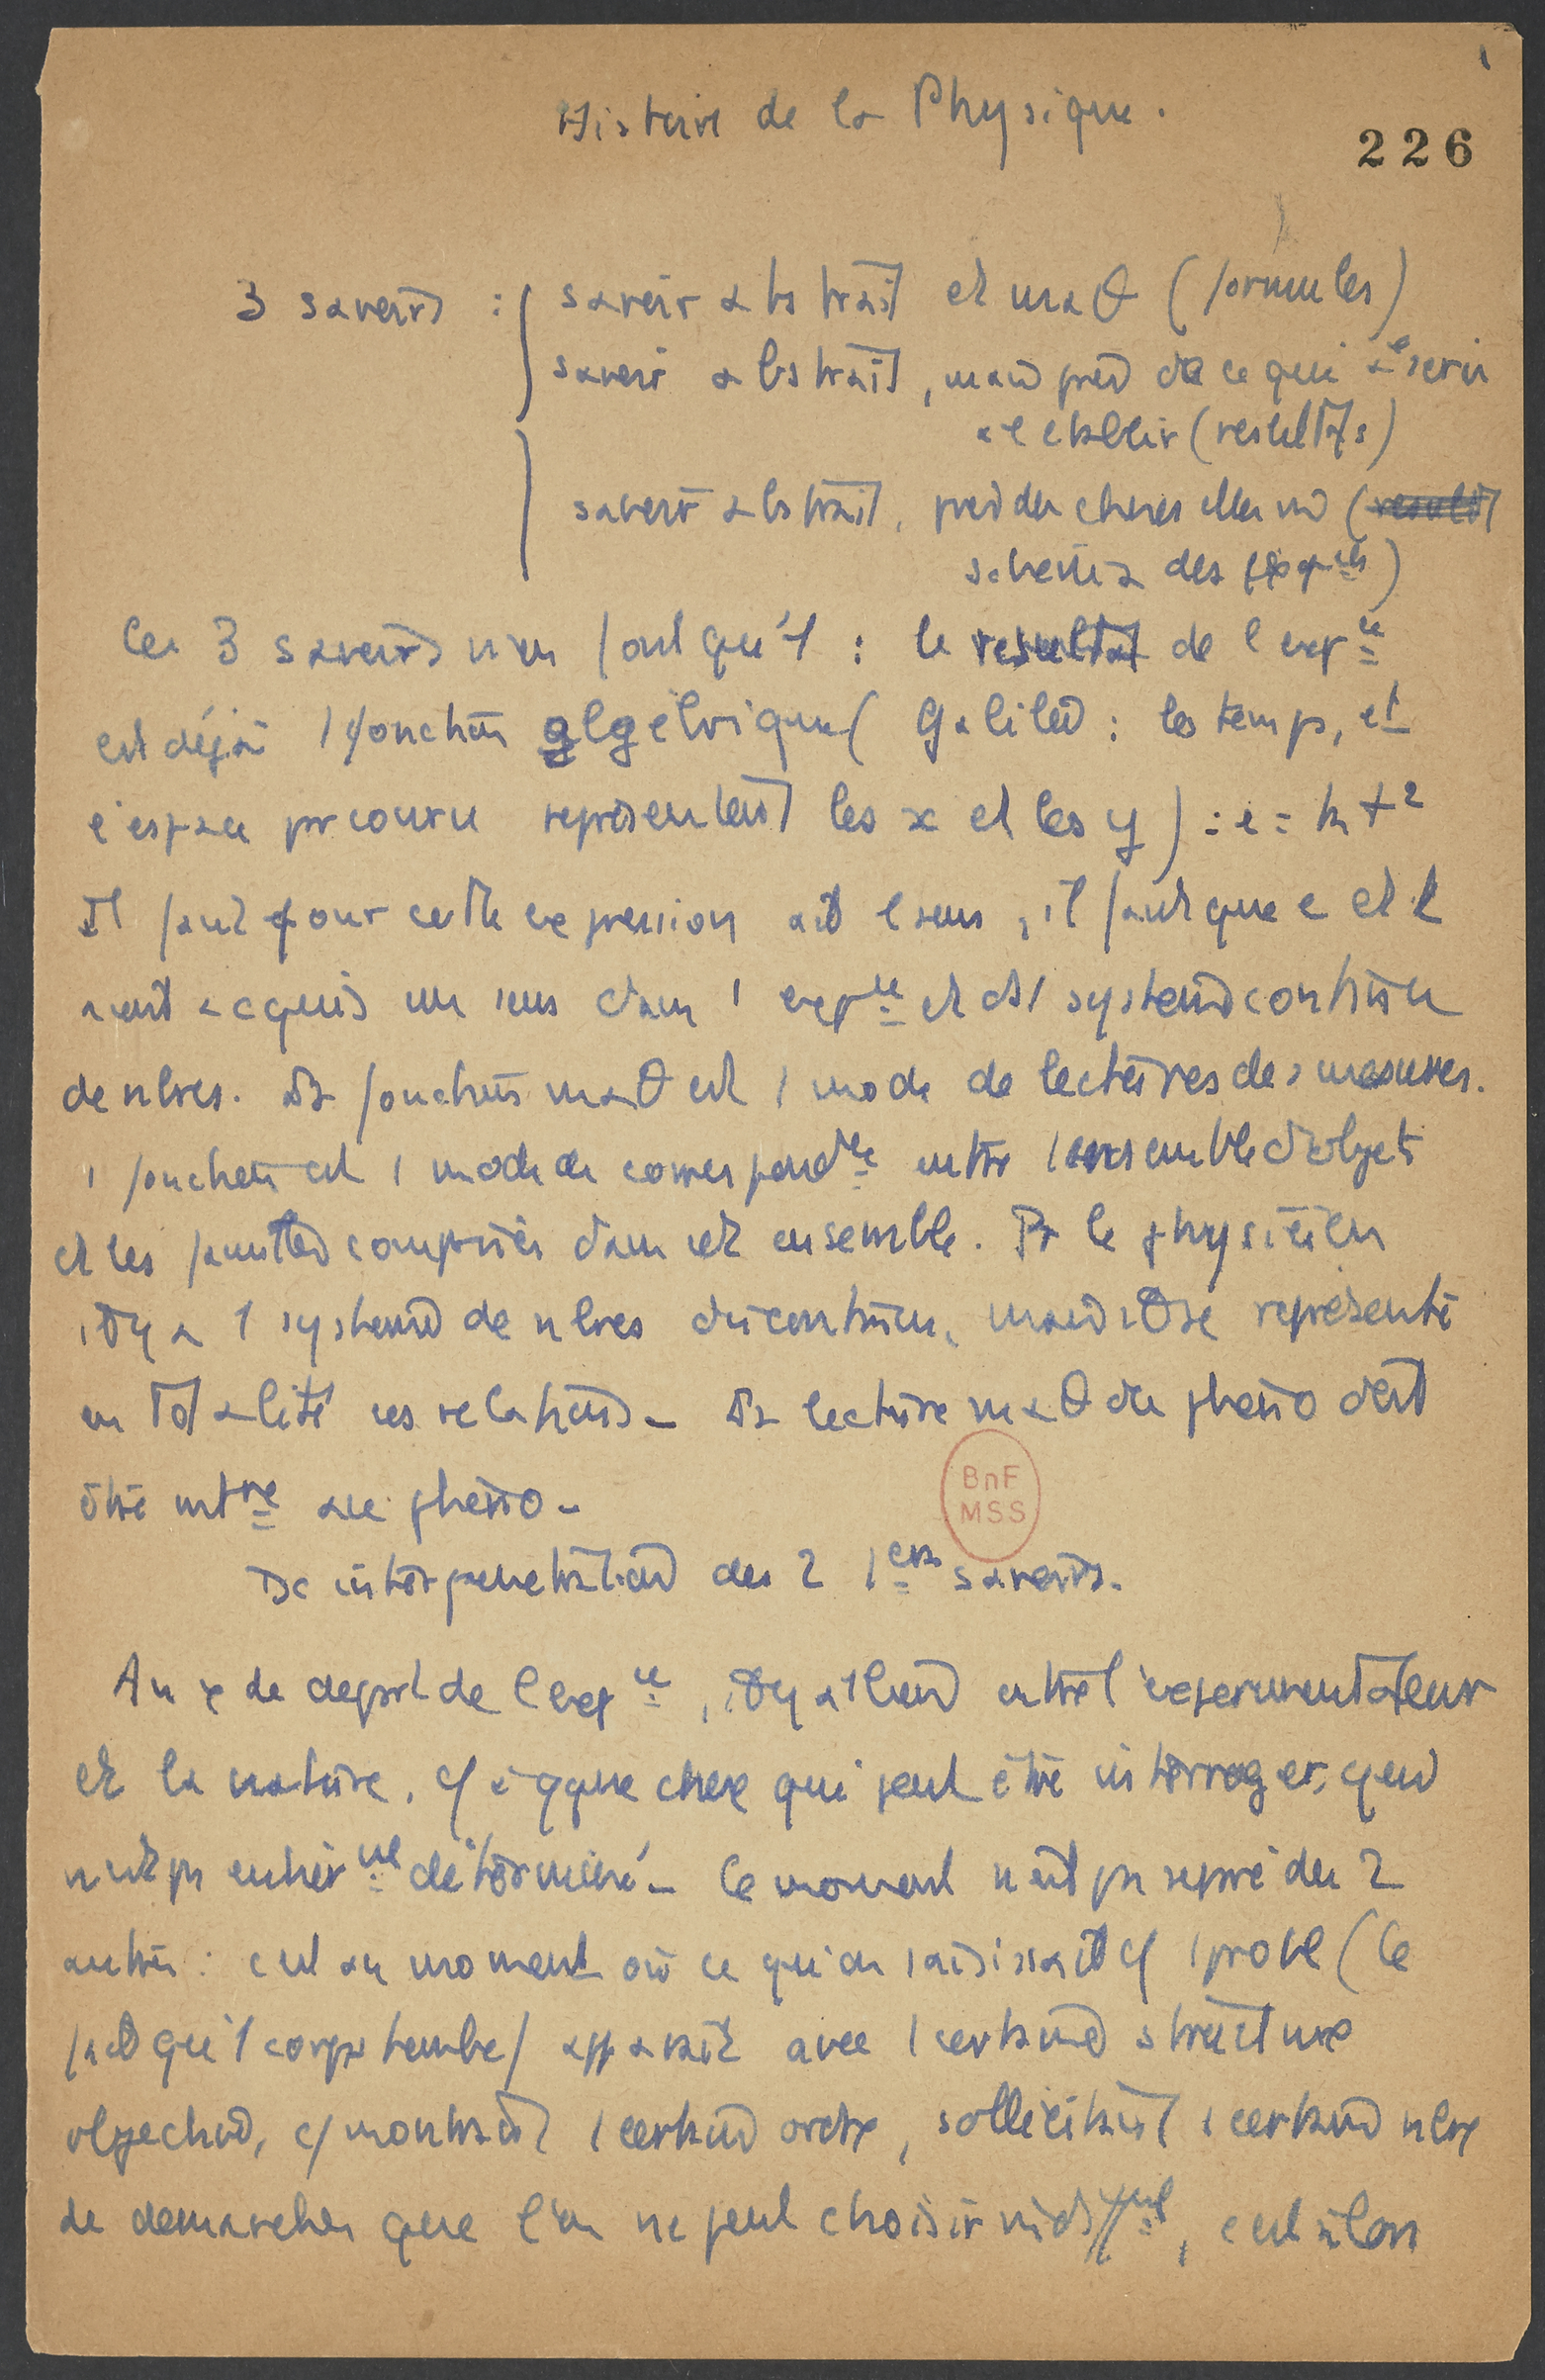 Histoire de la Physique.
226
3 savoirs : savoir abstrait et maθ (formules)
savoir abstrait, mais près de ce qui a servi
à l'établir (résultats)
savoir abstrait, près des choses elles m̂ (result
schéma des
Ces 3 savoirs n'en font qu'1 : le résultat de l'expce
est déjà 1 fonction algébrique (Galilée : les temps, et
l'espace parcouru représentent les x et les y) : e = kt²
Il faut pour cette expression ait 1 sens, il faut que e et t
aient acquis un sens dans 1 expce et ds 1 système continu
de nbres. La fonction maθ est 1 mode de lectures des mesures.
1 fonction est 1 mode de correspondce entre 1 ensemble d'objets
et les comprises dans cet ensemble. Pr le physicien
il y a 1 système de nbres discontinu, mais il se représente
en totalité ces relations - La lecture maθ du phéno doit
être intre au phéno -
BnF
MSS
Dc interpénétration des 2 1ers savoirs.
Au x de départ de l'expce, il y a 1 lien entre l'expérimentateur
et la nature, cf à qque chose qui peut être interroger, qui
n'est pas entièrmt déterminé - Ce moment n'est pas séparé des 2
autres : c'est au moment où ce qu'on saisissait cf 1 probl (le
fait qu'1 corps tombe) apparaît avec 1 certaine structure
objective, cf montrant 1 certain ordre, sollicitant 1 certain nbre
de démarches que l'on ne peut choisir indiffmt, c'est alors